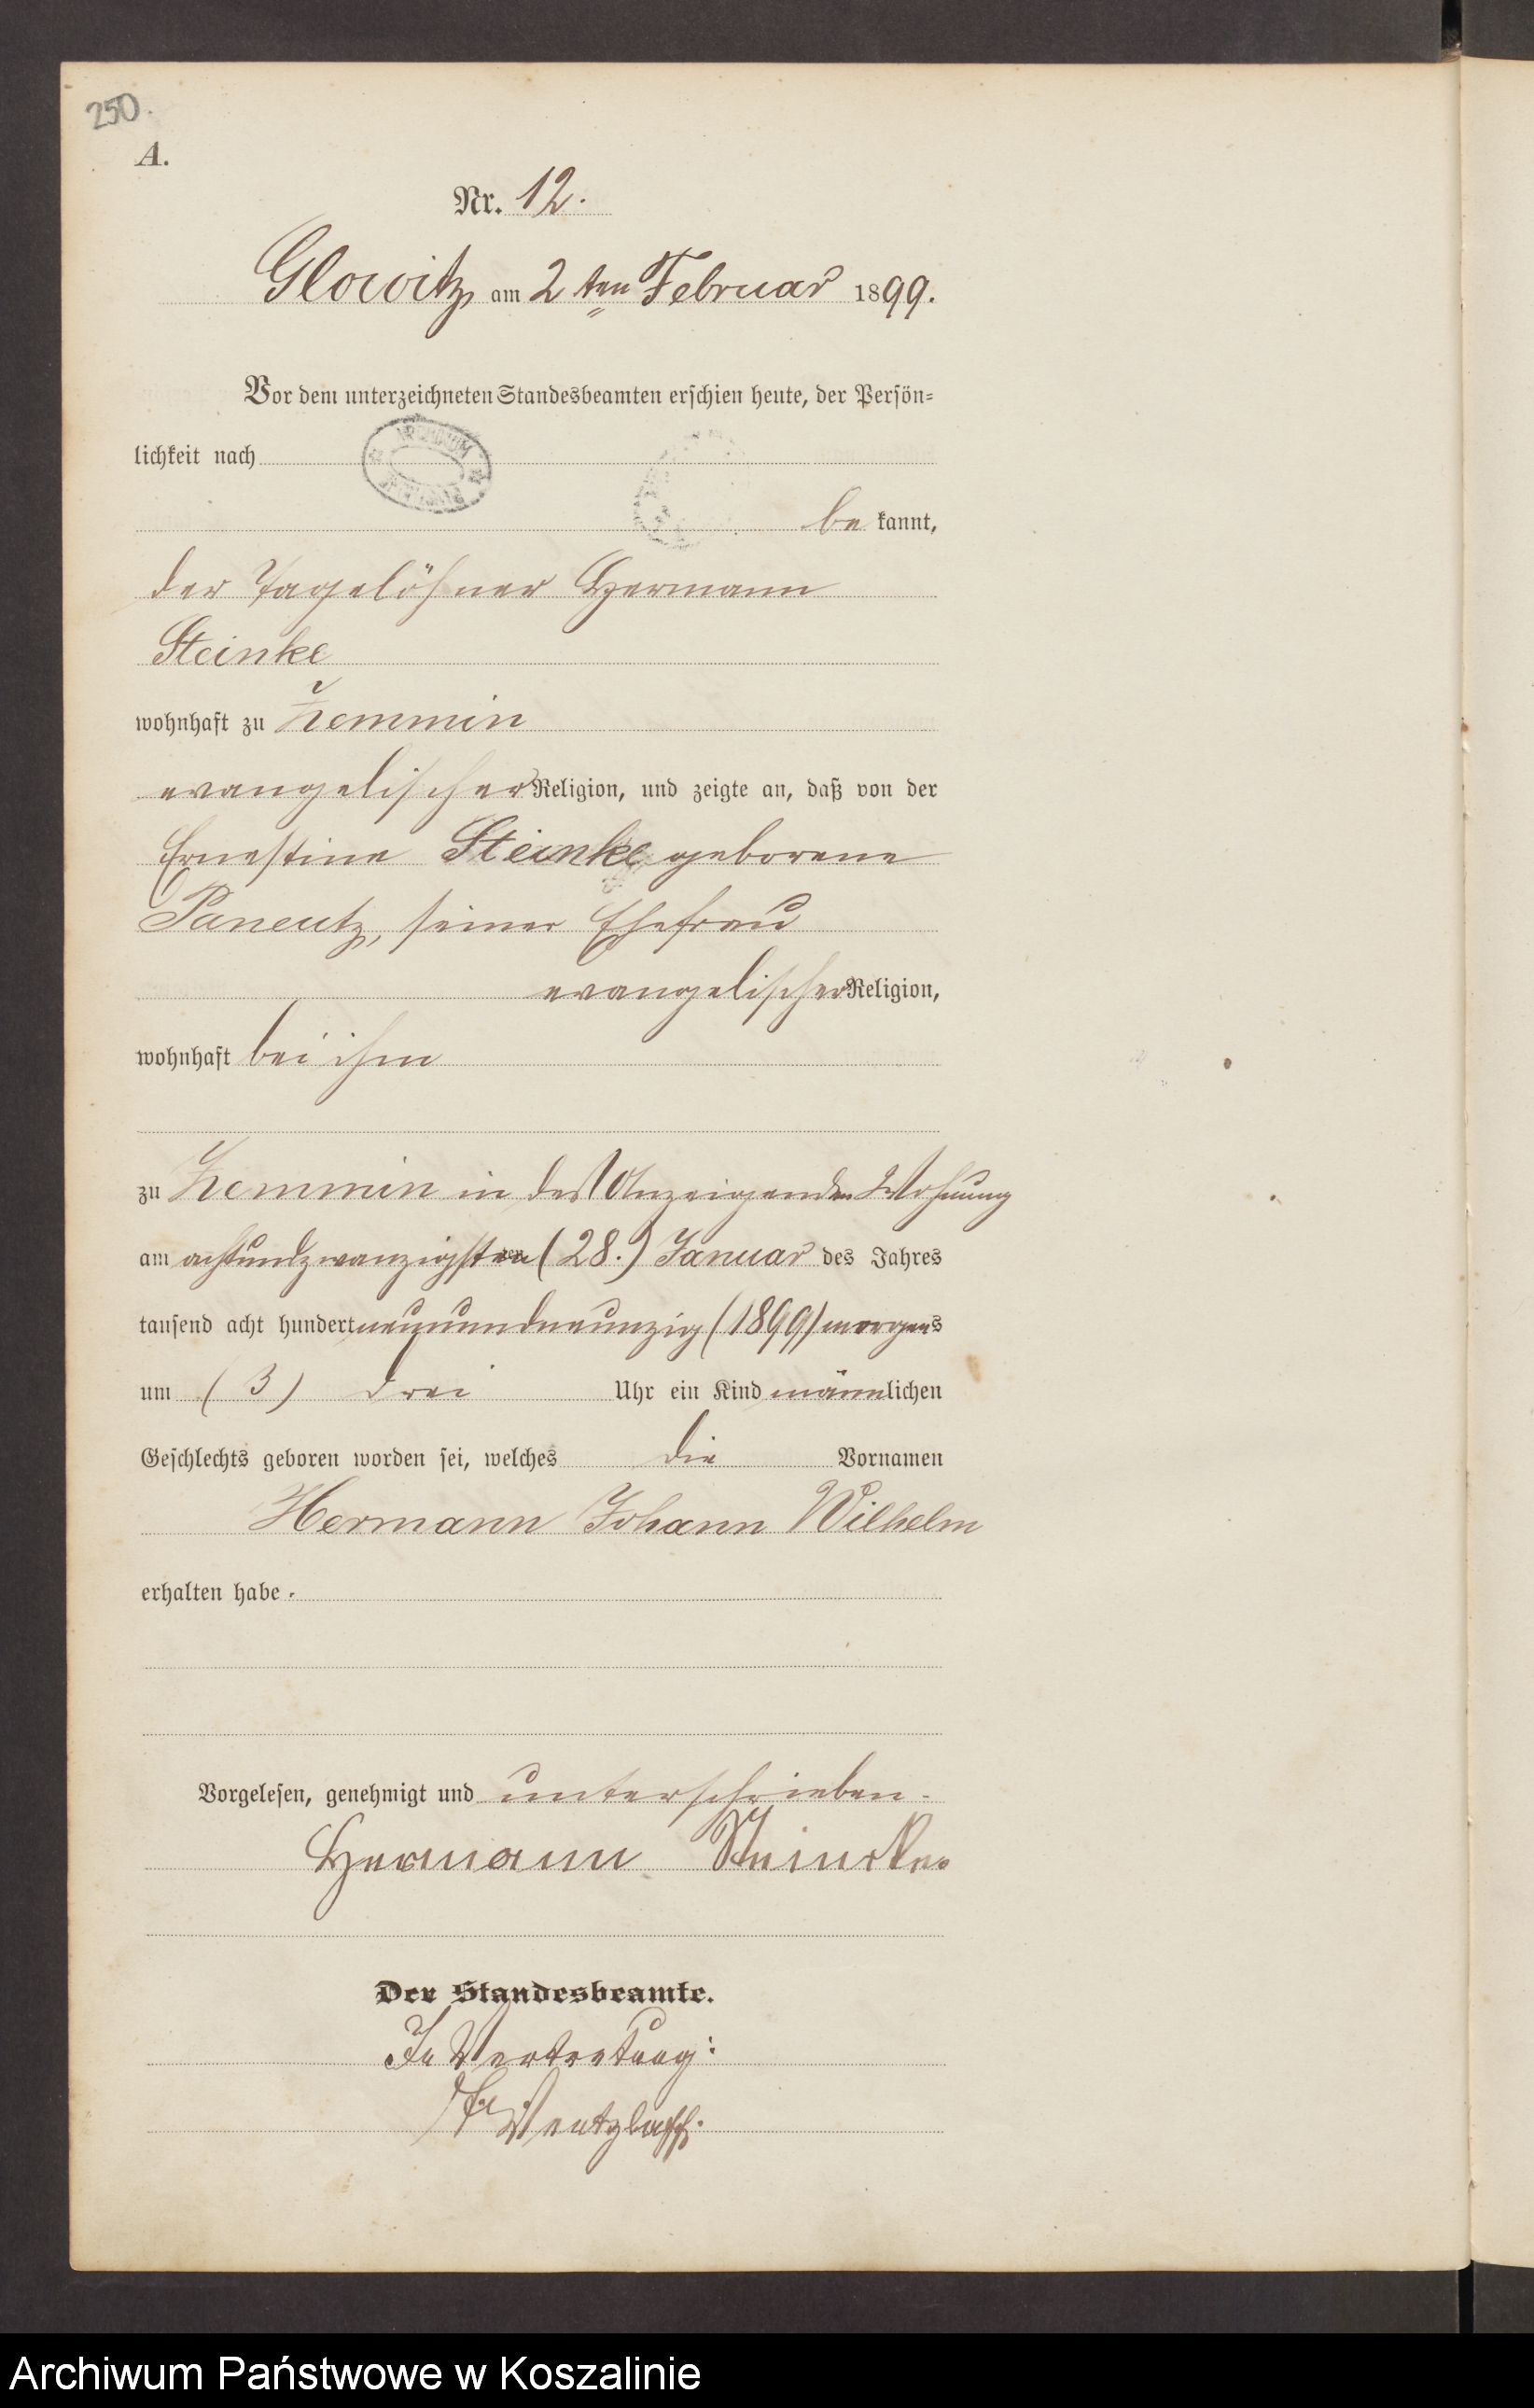 250.
A.
Nr. 12.
Glowitz, am 2ten Februar 1899.
Vor dem unterzeichneten Standesbeamten erschien heute, der Persön-
lichkeit nach
be kannt,
der Tagelöhner Hermann
Steinke
wohnhaft zu Zemmin
evangelischer Religion, und zeigte an, daß von der
Ernestine Steinke geborene
Paneutz, seiner Ehefrau
evangelischer Religion,
wohnhaft bei ihm
zu Zemmin in des Anzeigenden Wohnung
am achtundzwanzigsten (28.) Januar des Jahres
tausend acht hundert neunundneunzig (1899) morgens
um (3) drei Uhr ein Kind männlichen
Geschlechts geboren worden sei, welches die Vornamen
Hermann Johann Wilhelm
erhalten habe.
Vorgelesen, genehmigt und unterschrieben.
Hermann Steincke
Der Standesbeamte.
In Vertretung:
Archiwum Państwowe w Koszalinie